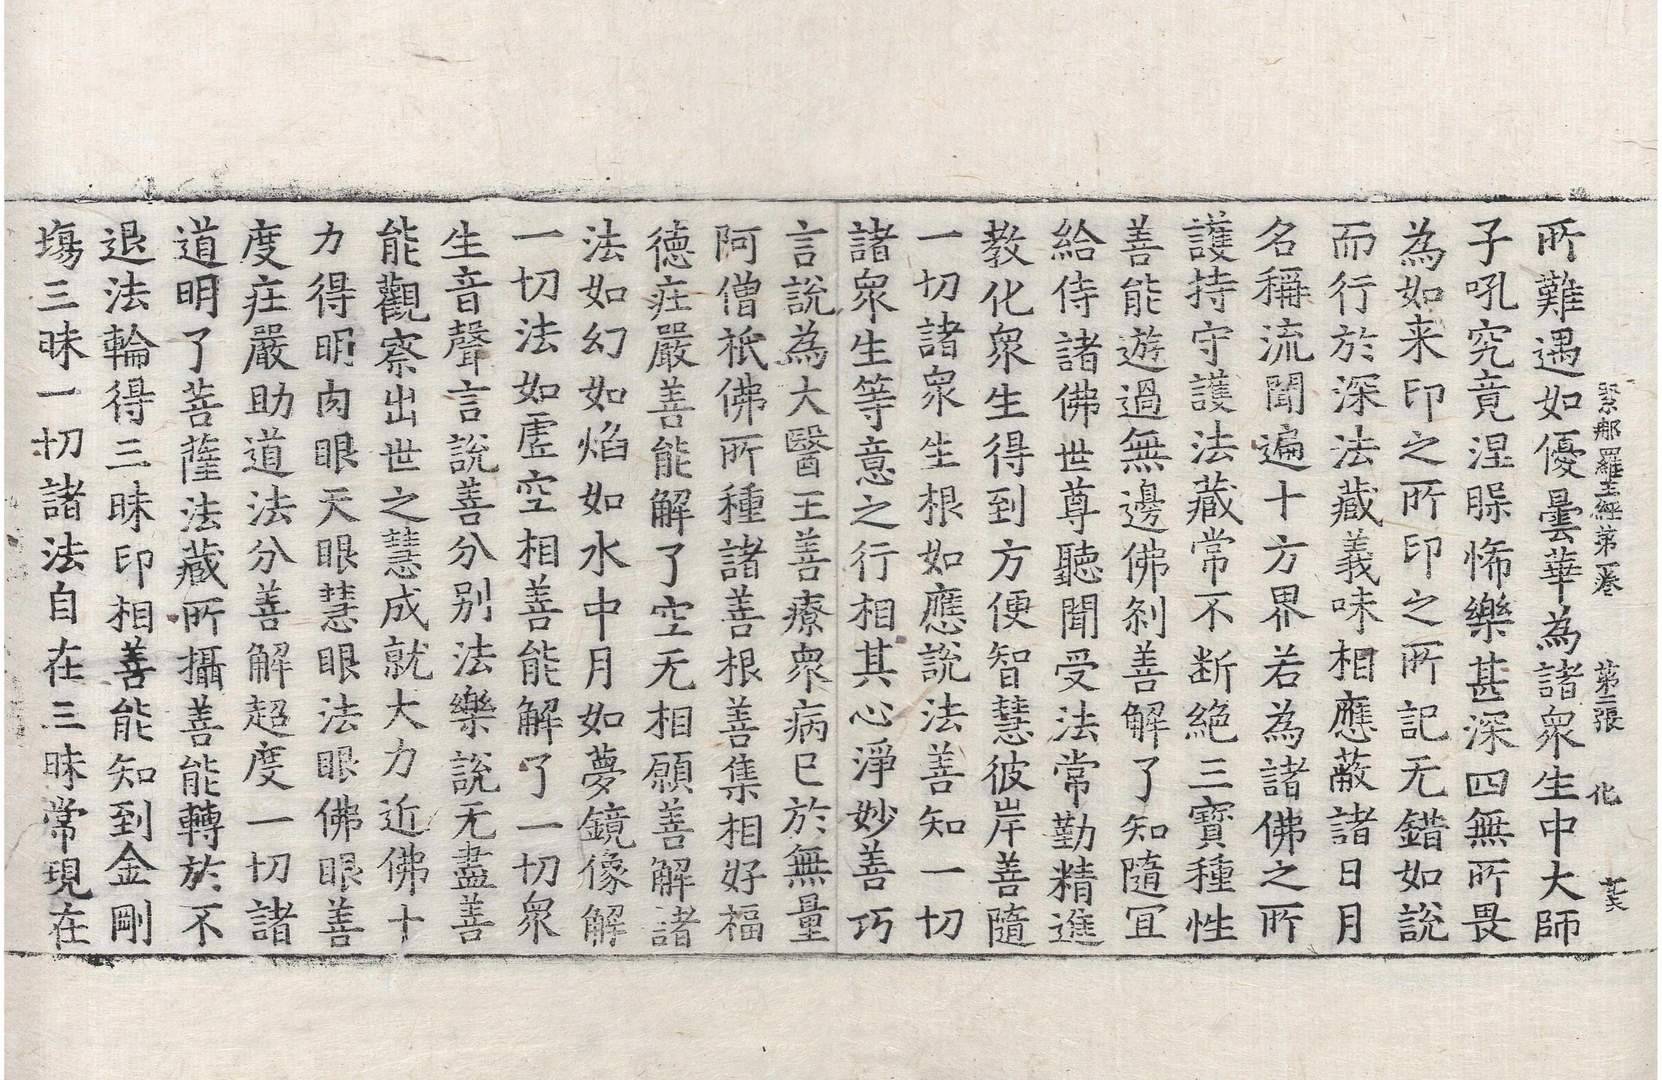 緊那羅王經第一卷 第二張 化
所難遇如優曇華為諸衆生中大師
子吼究竟涅槃怖樂甚深四無所畏
為如来印之所印之所記无錯如說
而行於深法藏義味相應蔽諸日月
名稱流聞遍十方界若為諸佛之所
護持守護法藏常不断絕三寶種性
善能遊過無邊佛刹善解了知隨冝
給侍諸佛世尊聽聞受法常勤精進
教化衆生得到方便智慧彼岸善隨
一切諸衆生根如應說法善知一切
諸衆生等意之行相其心淨妙善巧
言說為大醫王善療衆病已於無量
阿僧祇佛所種諸善根善集相好福
德庄嚴善能解了空无相願善解諸
法如幻如焰如水中月如夢鏡像解
一切法如虛空相善能解了一切衆
生音聲言說善分別法樂說无盡善
能觀察出世之慧成就大力近佛十
力得明肉眼天眼慧眼法眼佛眼善
度庄嚴助道法分善解超度一切諸
道明了菩薩法藏所攝善能轉於不
退法輪得三昧印相善能知到金剛
塲三昧一切諸法自在三昧常現在